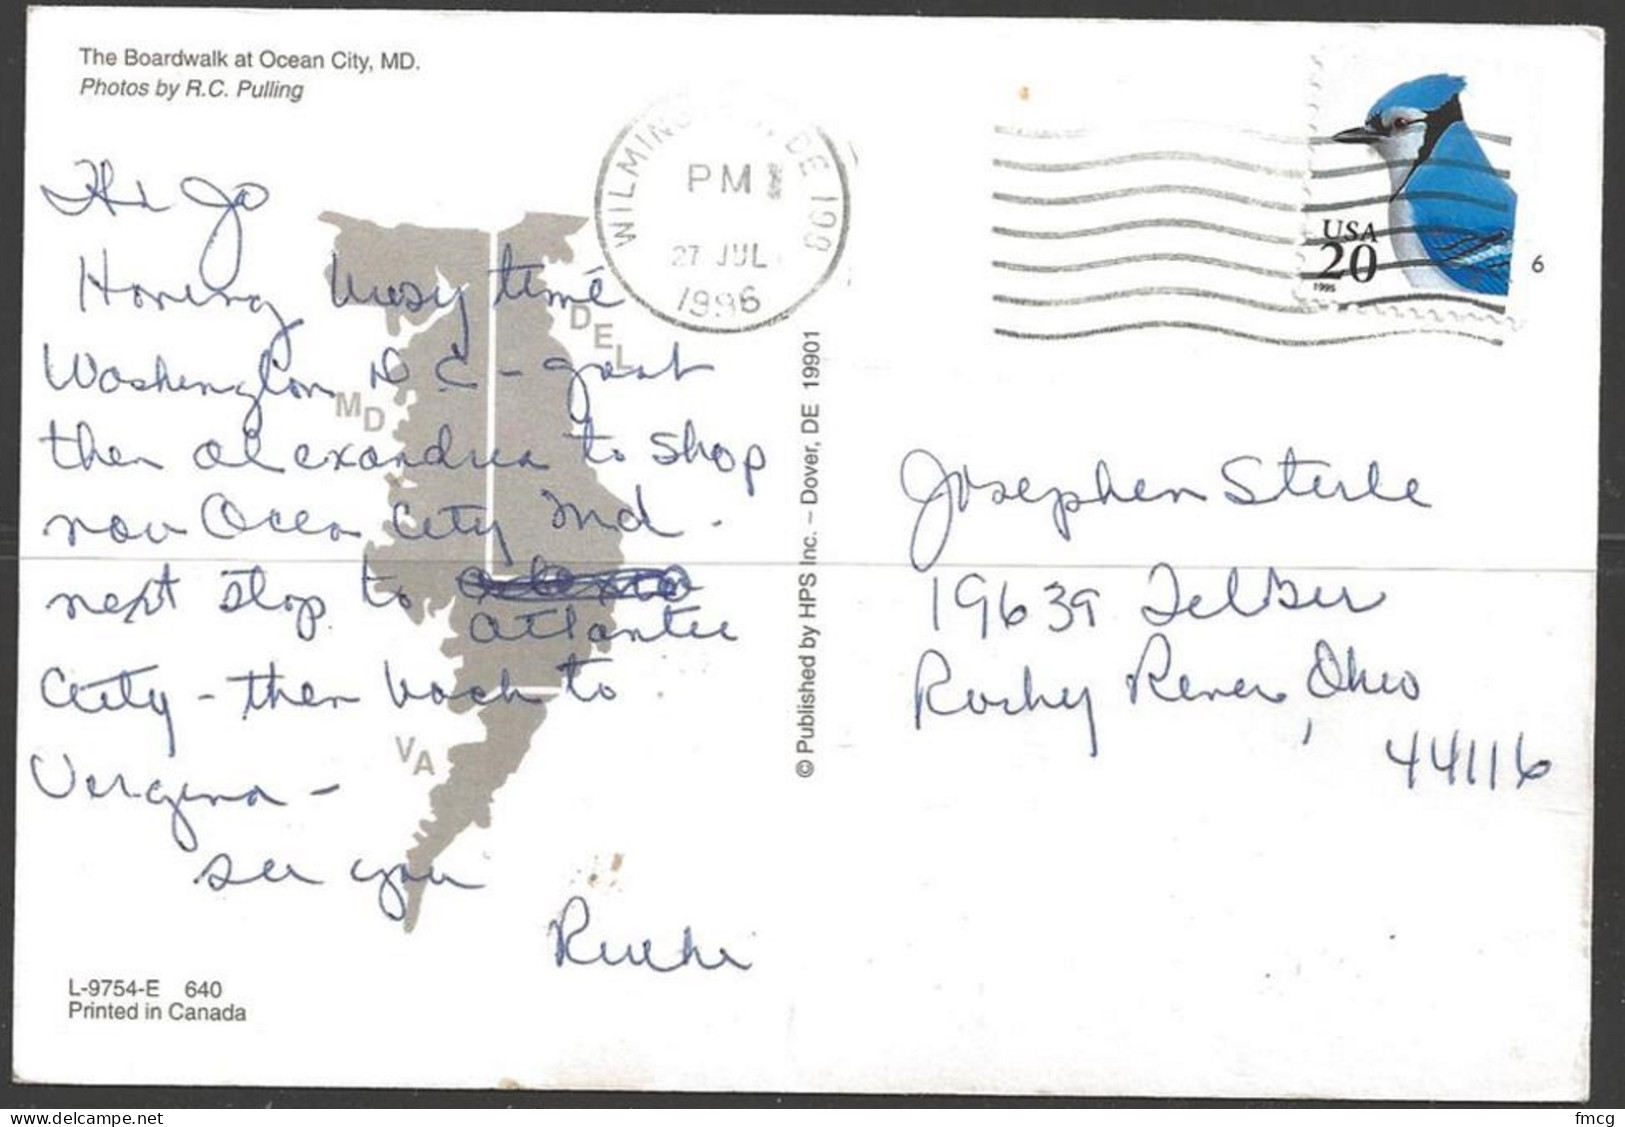 The Boardwalk at Ocean City, MD.
Photos by R.C. Pulling
Hi Jo
Having busy time
Washington D C - great
then alexandria to shop
now Ocean City Md.
next stop to
atlantic
City - then back to
Virgina -
see you
Ruthe
L-9754-E 640
Printed in Canada
DEL
MD
VA
© Published by HPS Inc. – Dover, DE 19901
WILMINGTON, DE 198
PM
27 JUL
1996
USA
20
1995
6
Josephen Sterle
19639 Telbir
Rocky River, Ohio
44116
fmcg